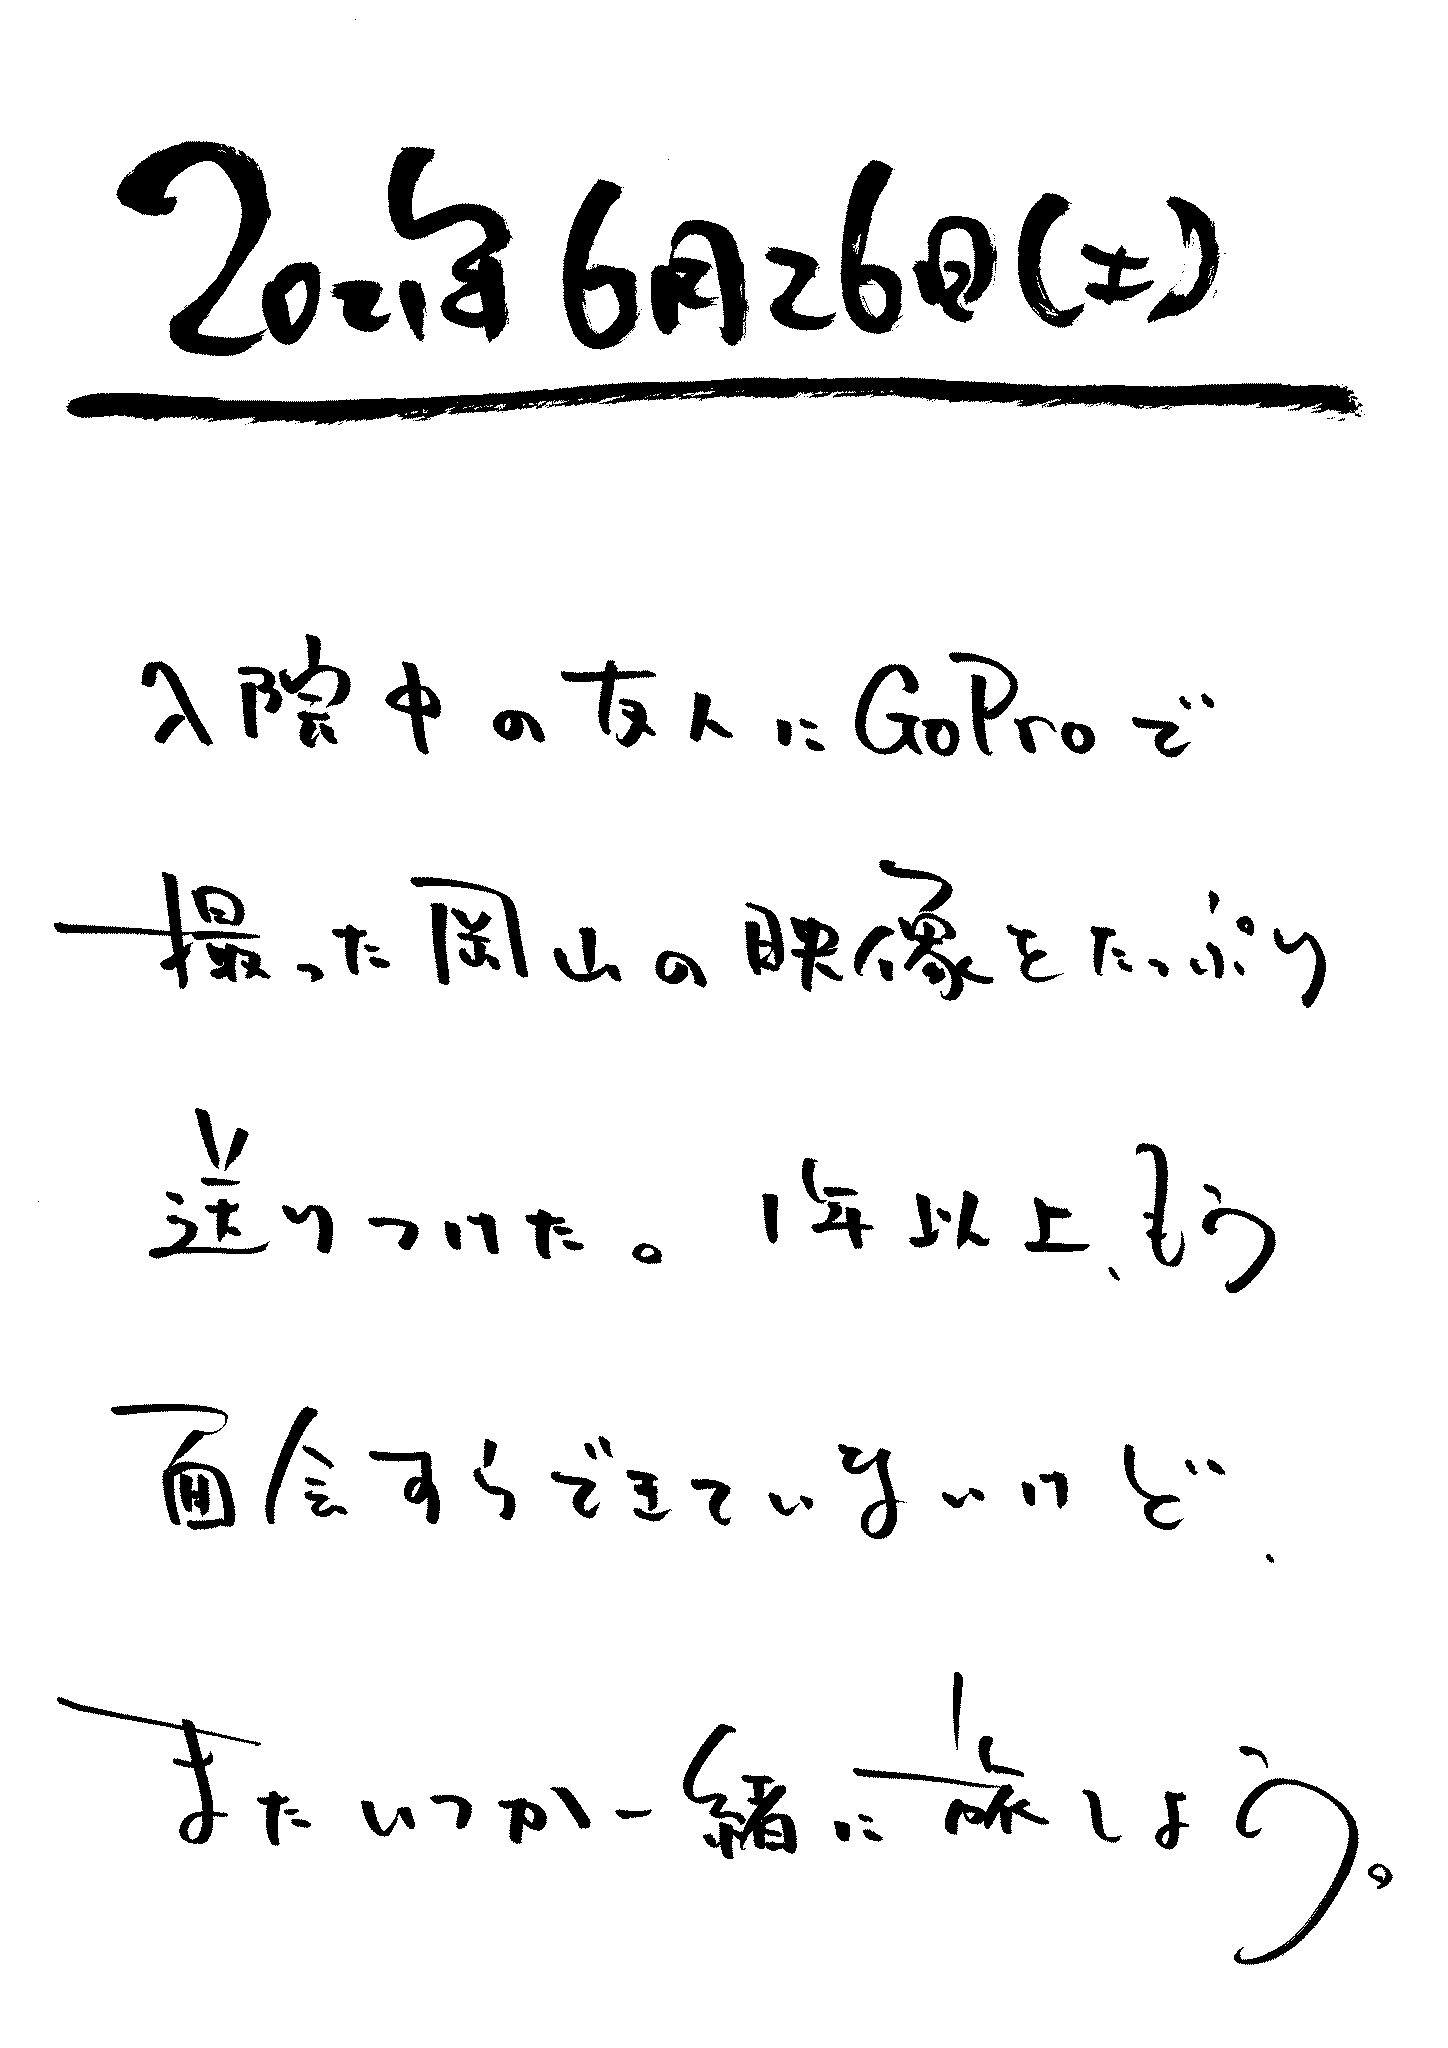 2021年6月26日(土)
入院中の友人にGoProで
撮った岡山の映像をたっぷり
送りつけた。1年以上、もう
面会すらできていないけど、
またいつか一緒に旅しよう。